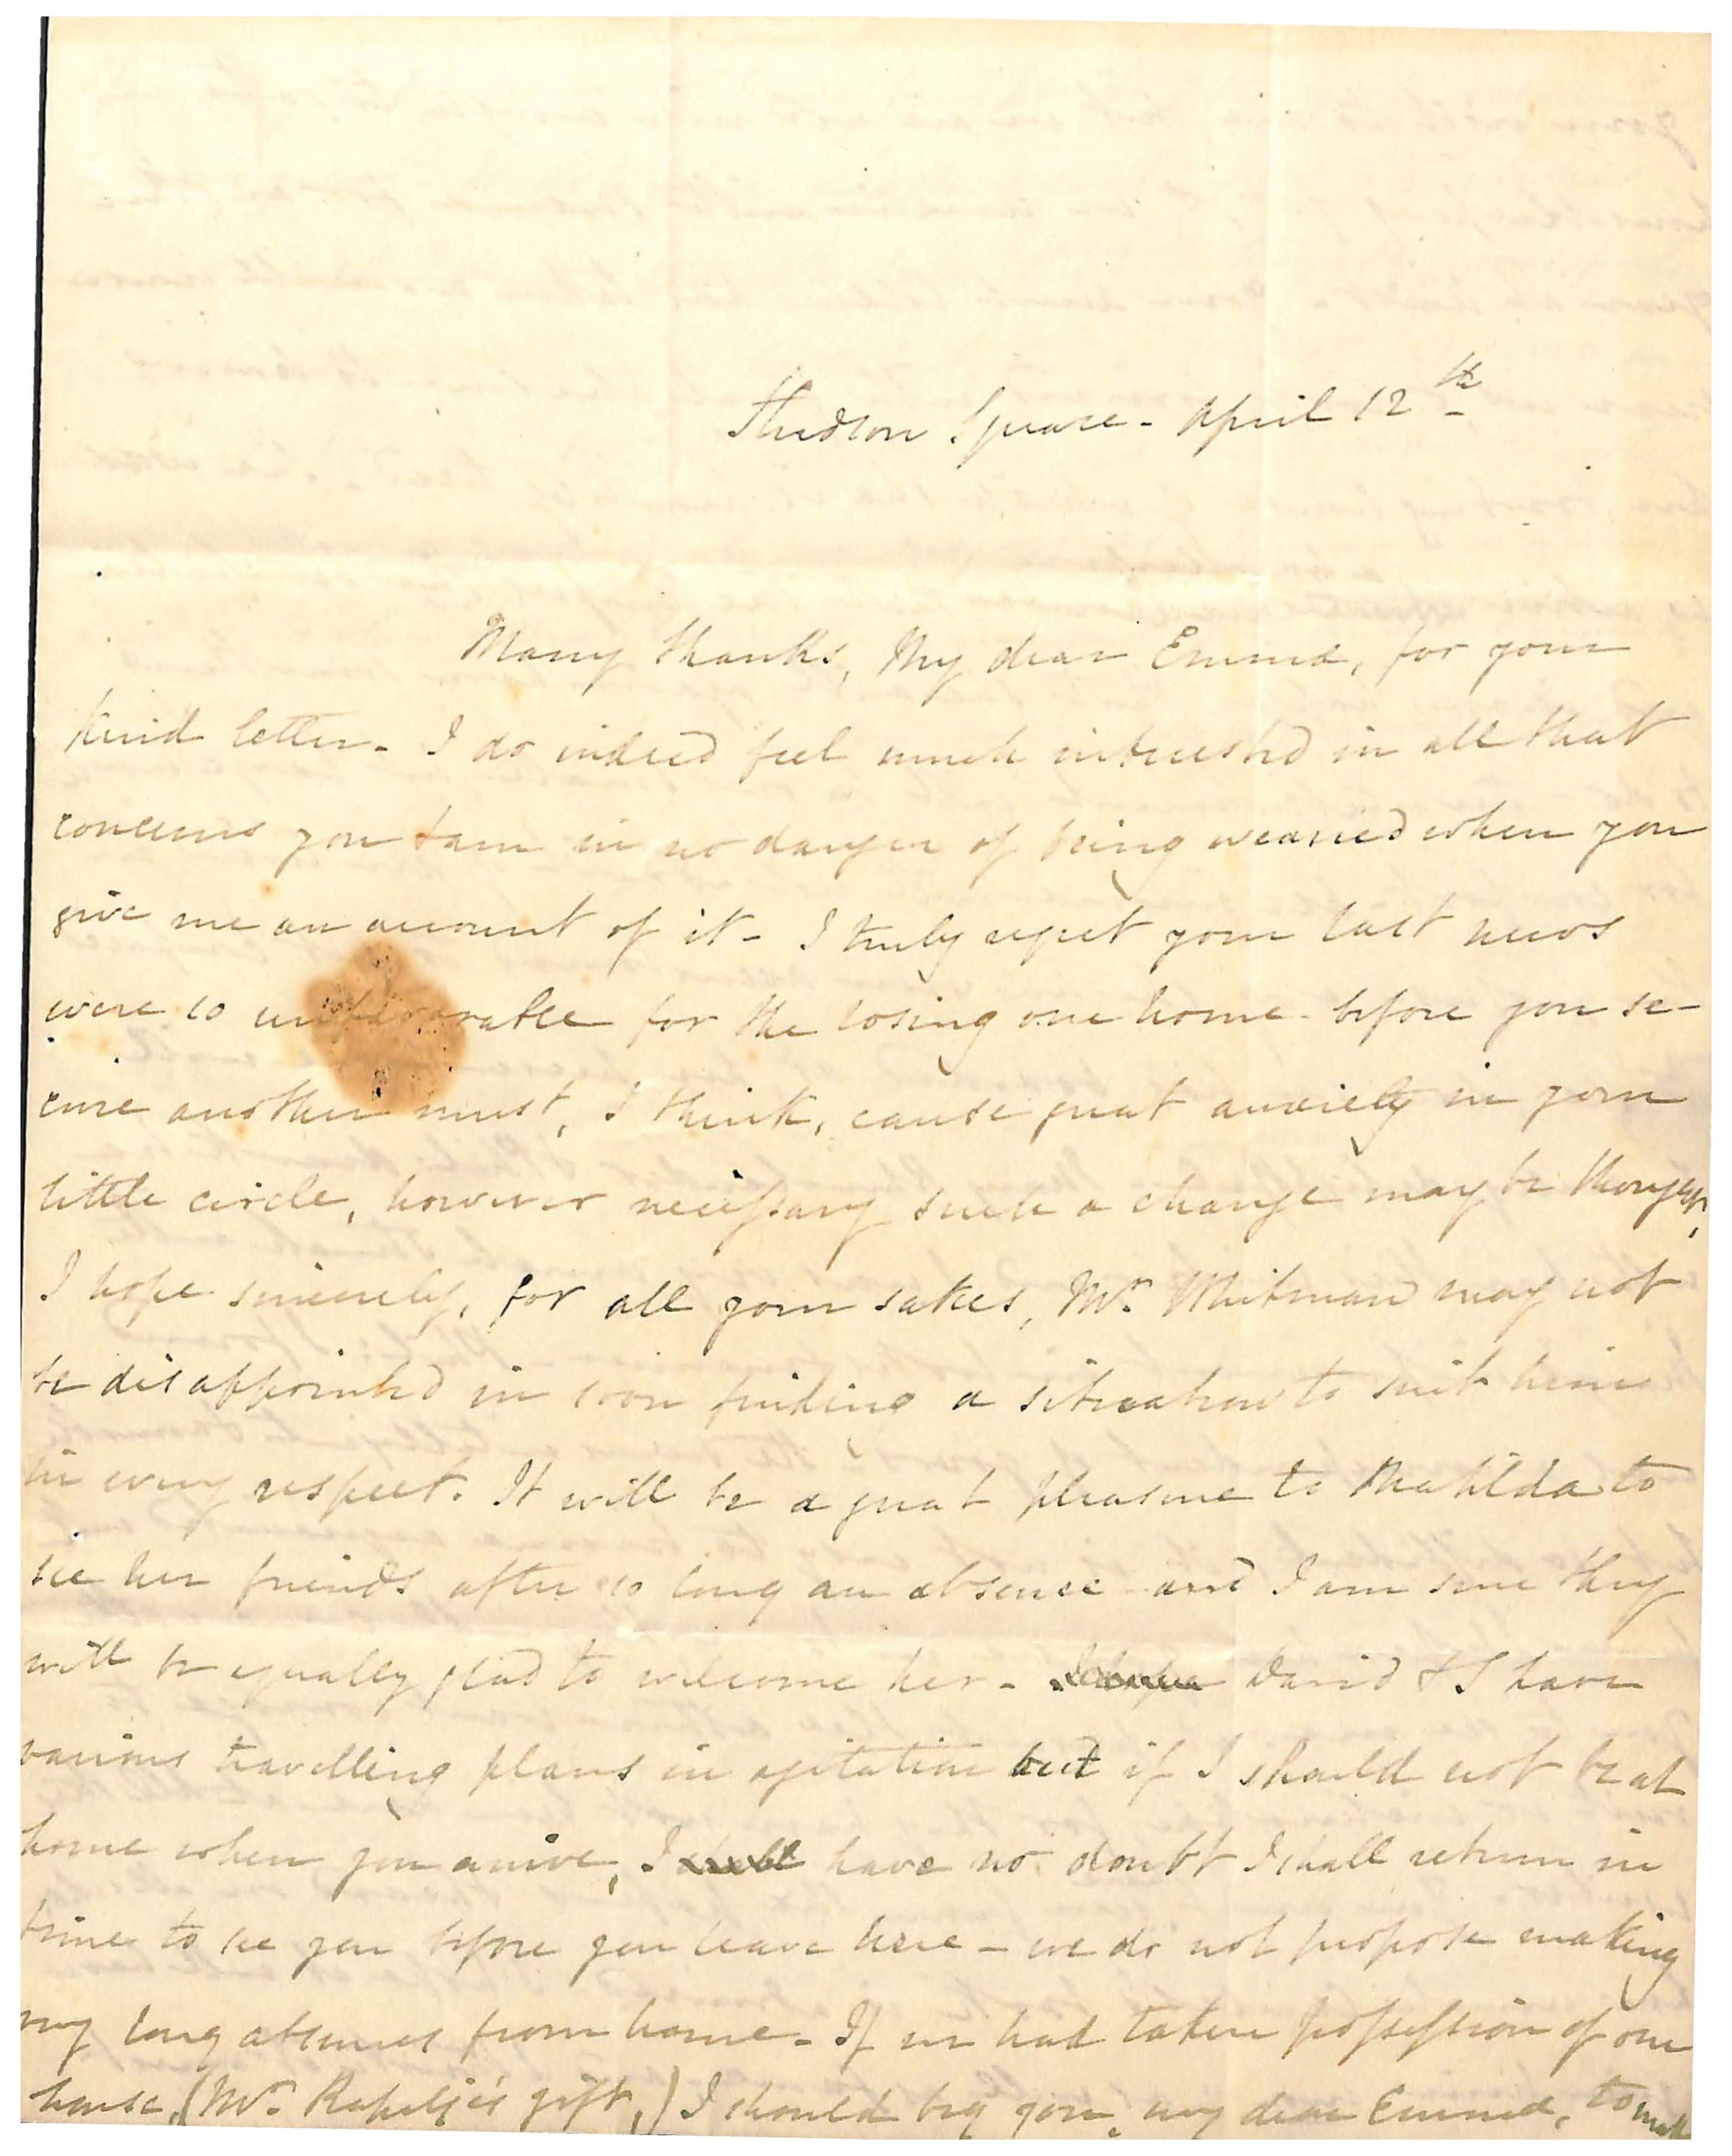 Hudson Square - April 12th
Many thanks, My dear Emma, for your
kind letter - I do indeed feel much interested in all that
concerns you & am in no danger of being wearied when you
give me an account of it - I truly regret your last news
were so unfavorable for the losing one home before you se-
cure another must, I think, cause great anxiety in your
little circle, however necessary such a change may be thought,
I hope sincerely, for all your sakes, Mr. Whitman may not
be disappointed in soon finding a situation to suit him
in every respect. It will be a great pleasure to Mathilda to
see her friends after so long an absence and I am sure they
will be equally glad to welcome her - David & I have
various travelling plans in agitation but if I should not be at
home when you arrive, I have no doubt I shall return in
time to see you before you leave here - we do not propose making
any long absences from home - If we had taken possession of our
house, (Mr. Rapelje's gift,) I should beg you, my dear Emma, to make